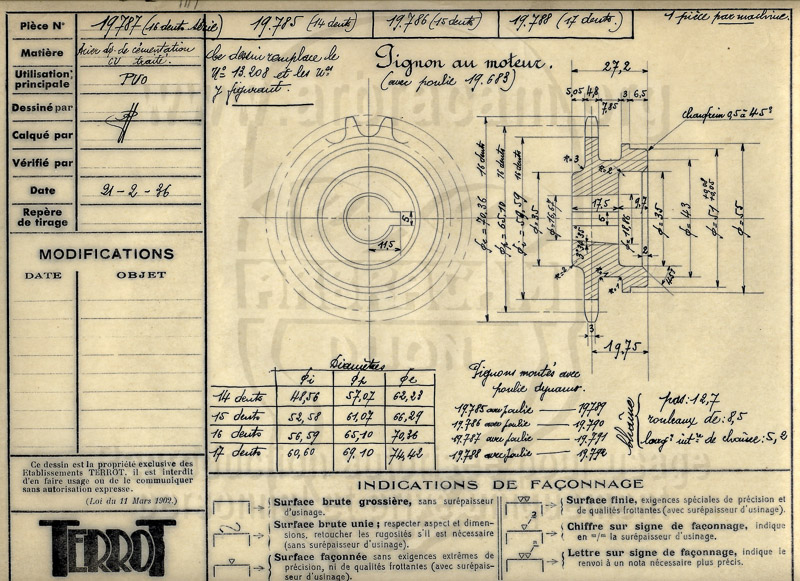 Pièce N° 19787 (16 dents série) 19.785 (14 dents) 19.786 (15 dents) 19.788 (17 dents) 1 pièce par machine.
Matière Acier dx. de cémentation CV traité.
Utilisation principale PUO
Dessiné par
Calqué par
Vérifié par
Date 21-2-36
Repère de tirage
MODIFICATIONS
DATE OBJET
Ce dessin remplace le
N° 13.208 et les Nos
y figurant.
Pignon au moteur.
(avec poulie 19.683)
27,2
5,05 4,8 3 6,5
7,85
chanfrein 0,5 à 45°
16 dents
16 dents
16 dents
r=3
r=2
17,5
9,7
6
6
11,5
φe = 70,36
φp = 65,10
φi = 56,59
φ=35
φ=16,67
φ=18,16
φ=35
φ=43
φ=55
r=1
2
3
19.75
Diamètres
φi φp φe
14 dents 48,56 57,07 62,23
15 dents 52,58 61,07 66,29
16 dents 56,59 65,10 70,36
17 dents 60,60 69.10 74,42
Pignons montés avec
poulie dynamo.
19.785 avec poulie — 19.789
19.786 avec poulie — 19.790
19.787 avec poulie — 19.791
19.788 avec poulie — 19.792
Chaîne
pas: 12,7
rouleaux de: 8,5
larg. intre de chaîne: 5,2
Ce dessin est la propriété exclusive des
Etablissements TERROT. il est interdit
d'en faire usage ou de le communiquer
sans autorisation expresse.
(Loi du 11 Mars 1902.)
TERROT
INDICATIONS DE FAÇONNAGE
Surface brute grossière, sans surépaisseur
d'usinage.
Surface brute unie; respecter aspect et dimen-
sions, retoucher les rugosités s'il est nécessaire
(sans surépaisseur d'usinage).
Surface façonnée sans exigences extrêmes de
précision, ni de qualités frottantes (avec surépais-
seur d'usinage).
Surface finie, exigences spéciales de précision et
de qualités frottantes (avec surépaisseur d'usinage).
Chiffre sur signe de façonnage, indique
en m/m la surépaisseur d'usinage.
Lettre sur signe de façonnage, indique le
renvoi à un nota nécessaire plus précis.